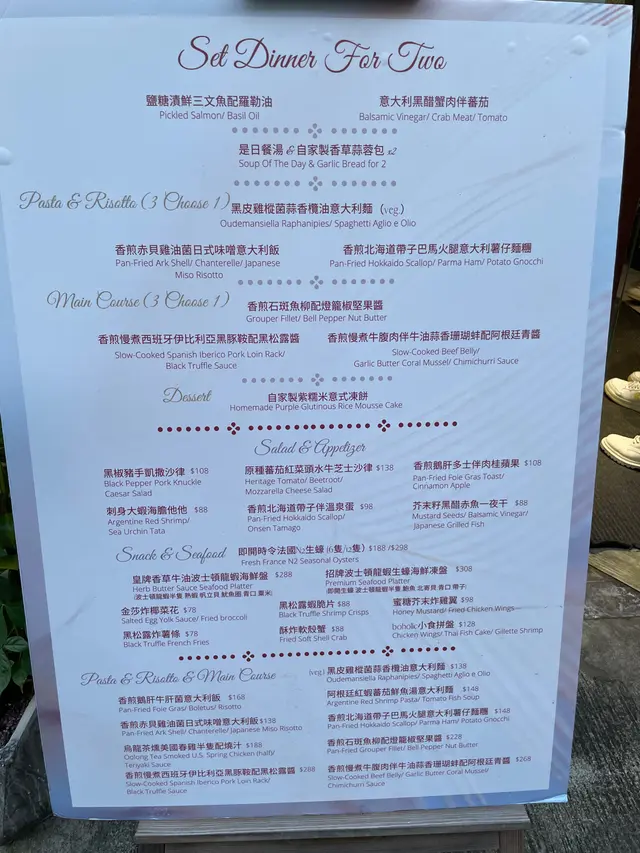 Set Dinner For Two
鹽糖漬鮮三文魚配羅勒油
Pickled Salmon/ Basil Oil
意大利黑醋蟹肉伴蕃茄
Balsamic Vinegar/ Crab Meat/ Tomato
是日餐湯 & 自家製香草蒜蓉包 x2
Soup Of The Day & Garlic Bread for 2
Pasta & Risotto (3 Choose 1)
黑皮雞樅菌蒜香欖油意大利麵 (veg.)
Oudemansiella Raphanipies/ Spaghetti Aglio e Olio
香煎赤貝雞油菌日式味噌意大利飯
Pan-Fried Ark Shell/ Chanterelle/ Japanese
Miso Risotto
香煎北海道帶子巴馬火腿意大利薯仔麵糰
Pan-Fried Hokkaido Scallop/ Parma Ham/ Potato Gnocchi
Main Course (3 Choose 1)
香煎石斑魚柳配燈籠椒堅果醬
Grouper Fillet/ Bell Pepper Nut Butter
香煎慢煮西班牙伊比利亞黑豚鞍配黑松露醬
Slow-Cooked Spanish Iberico Pork Loin Rack/
Black Truffle Sauce
香煎慢煮牛腹肉伴牛油蒜香珊瑚蚌配阿根廷青醬
Slow-Cooked Beef Belly/
Garlic Butter Coral Mussel/ Chimichurri Sauce
Dessert
自家製紫糯米意式凍餅
Homemade Purple Glutinous Rice Mousse Cake
Salad & Appetizer
黑椒豬手凱撒沙律 $108
Black Pepper Pork Knuckle
Caesar Salad
原種蕃茄紅菜頭水牛芝士沙律 $138
Heritage Tomato/ Beetroot/
Mozzarella Cheese Salad
香煎鵝肝多士伴肉桂蘋果 $108
Pan-Fried Foie Gras Toast/
Cinnamon Apple
刺身大蝦海膽他他 $88
Argentine Red Shrimp/
Sea Urchin Tata
香煎北海道帶子伴溫泉蛋 $98
Pan-Fried Hokkaido Scallop/
Onsen Tamago
芥末籽黑醋赤魚一夜干 $88
Mustard Seeds/ Balsamic Vinegar/
Japanese Grilled Fish
Snack & Seafood
即開時令法國N2生蠔 (6隻/12隻) $188 /$298
Fresh France N2 Seasonal Oysters
皇牌香草牛油波士頓龍蝦海鮮盤 $288
Herb Butter Sauce Seafood Platter
招牌波士頓龍蝦生蠔海鮮凍盤 $308
Premium Seafood Platter
金莎炸椰菜花 $78
Salted Egg Yolk Sauce/ Fried broccoli
黑松露蝦脆片 $88
Black Truffle Shrimp Crisps
蜜糖芥末炸雞翼 $98
Honey Mustard/ Fried Chicken Wings
黑松露炸薯條 $78
Black Truffle French Fries
酥炸軟殼蟹 $88
Fried Soft Shell Crab
boholic小食拼盤 $128
Chicken Wings/ Thai Fish Cake/ Gillette Shrimp
Pasta & Risotto & Main Course
(veg.) 黑皮雞樅菌蒜香欖油意大利麵 $138
Oudemansiella Raphanipies/ Spaghetti Aglio e Olio
香煎鵝肝牛肝菌意大利飯 $168
Pan-Fried Foie Gras/ Boletus/ Risotto
阿根廷紅蝦蕃茄鮮魚湯意大利麵 $148
Argentine Red Shrimp Pasta/ Tomato Fish Soup
香煎赤貝雞油菌日式味噌意大利飯 $138
Pan-Fried Ark Shell/ Chanterelle/ Japanese Miso Risotto
香煎北海道帶子巴馬火腿意大利薯仔麵糰 $148
Pan-Fried Hokkaido Scallop/ Parma Ham/ Potato Gnocchi
烏龍茶燻美國春雞半隻配燒汁 $188
Oolong Tea Smoked U.S. Spring Chicken (half)/
Teriyaki Sauce
香煎石斑魚柳配燈籠椒堅果醬 $228
Pan-Fried Grouper Fillet/ Bell Pepper Nut Butter
香煎慢煮西班牙伊比利亞黑豚鞍配黑松露醬 $288
Slow-Cooked Spanish Iberico Pork Loin Rack/
Black Truffle Sauce
香煎慢煮牛腹肉伴牛油蒜香珊瑚蚌配阿根廷青醬 $268
Slow-Cooked Beef Belly/ Garlic Butter Coral Mussel/
Chimichurri Sauce